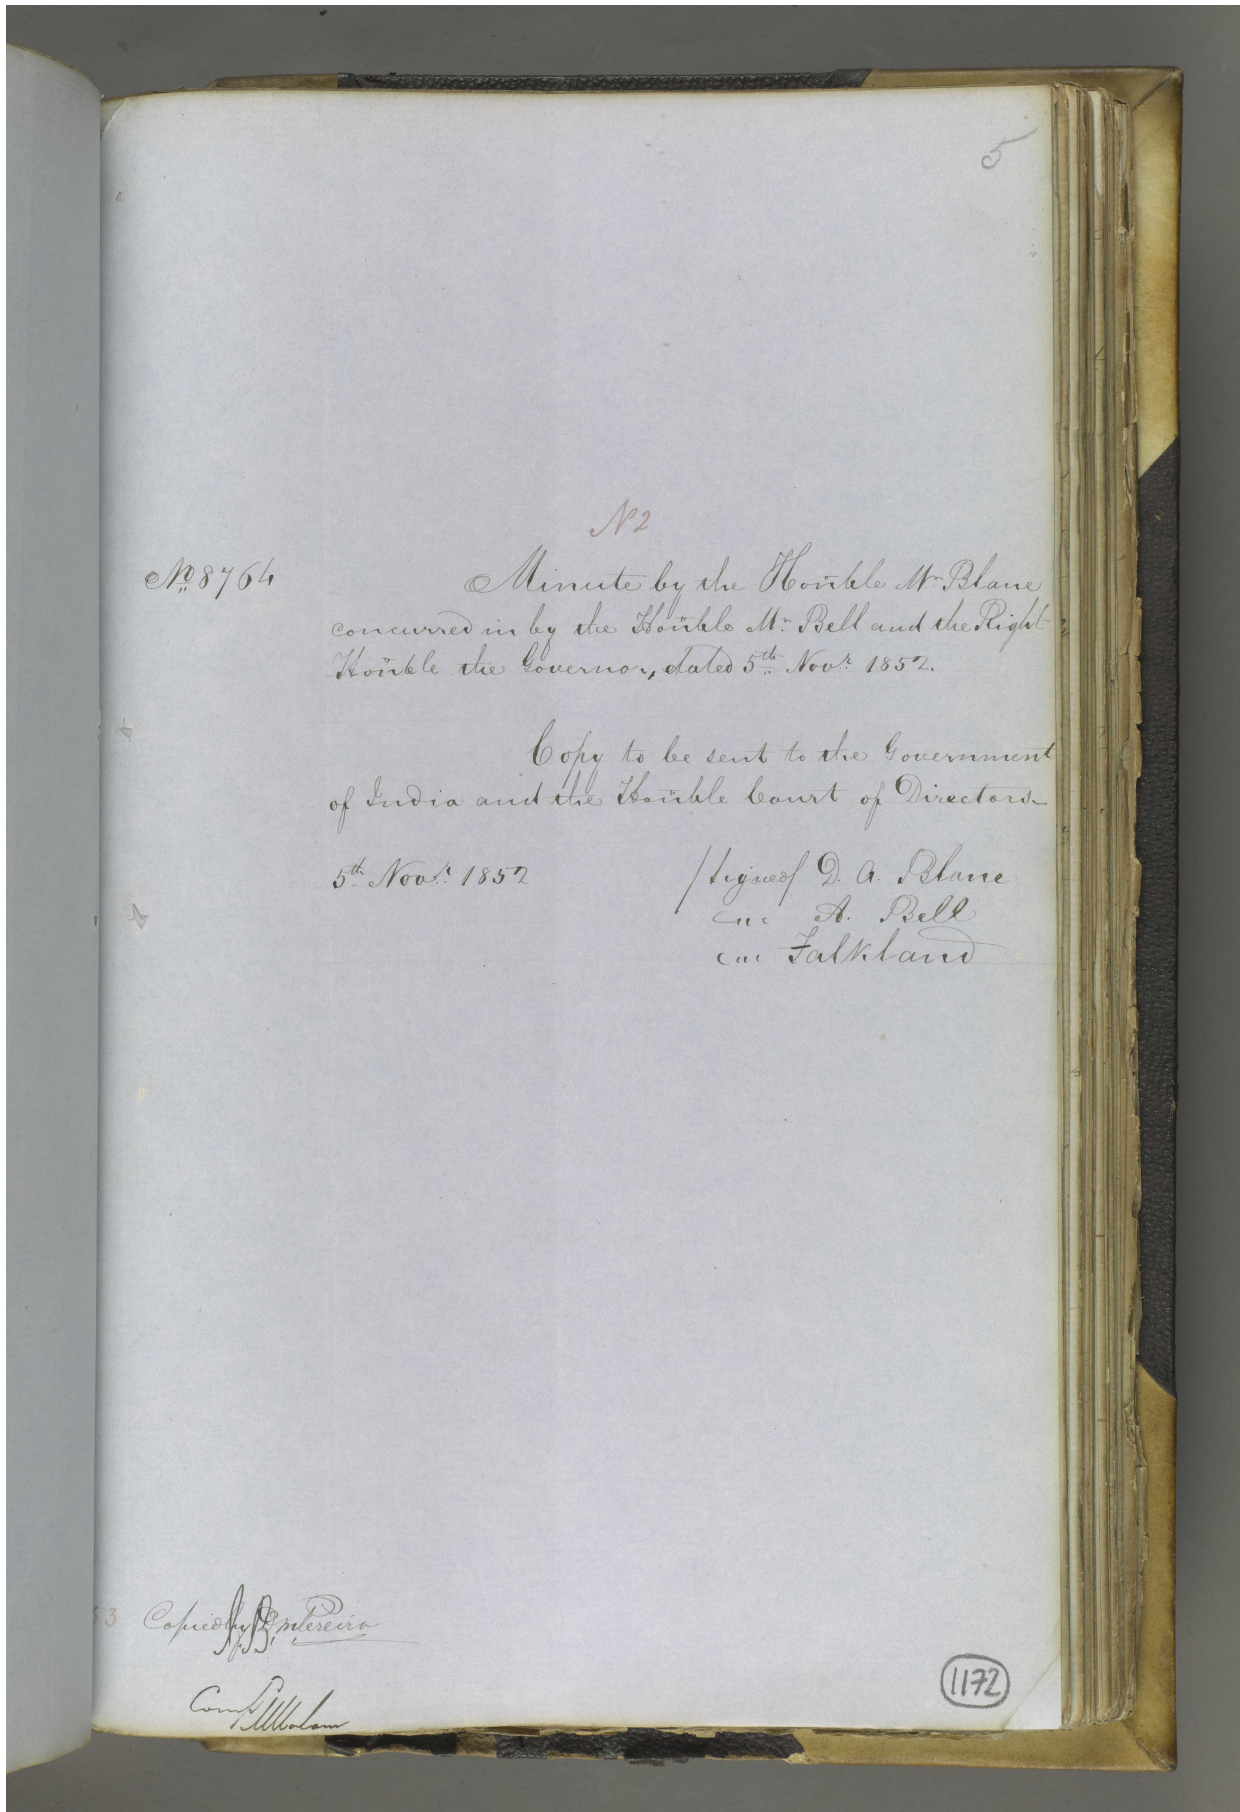 5
N 2
No. 8764
Minute by the Honble Mr. Blane
concurred in by the Honble Mr. Bell and the Right
Honble the Governor, dated 5th Novr. 1852.
Copy to be sent to the Government
of India and the Honble Court of Directors
5th Novr. 1852
/signed/ D. A. Blane
" A. Bell
" Falkland
53
Copied by Pereira
Comd
1172